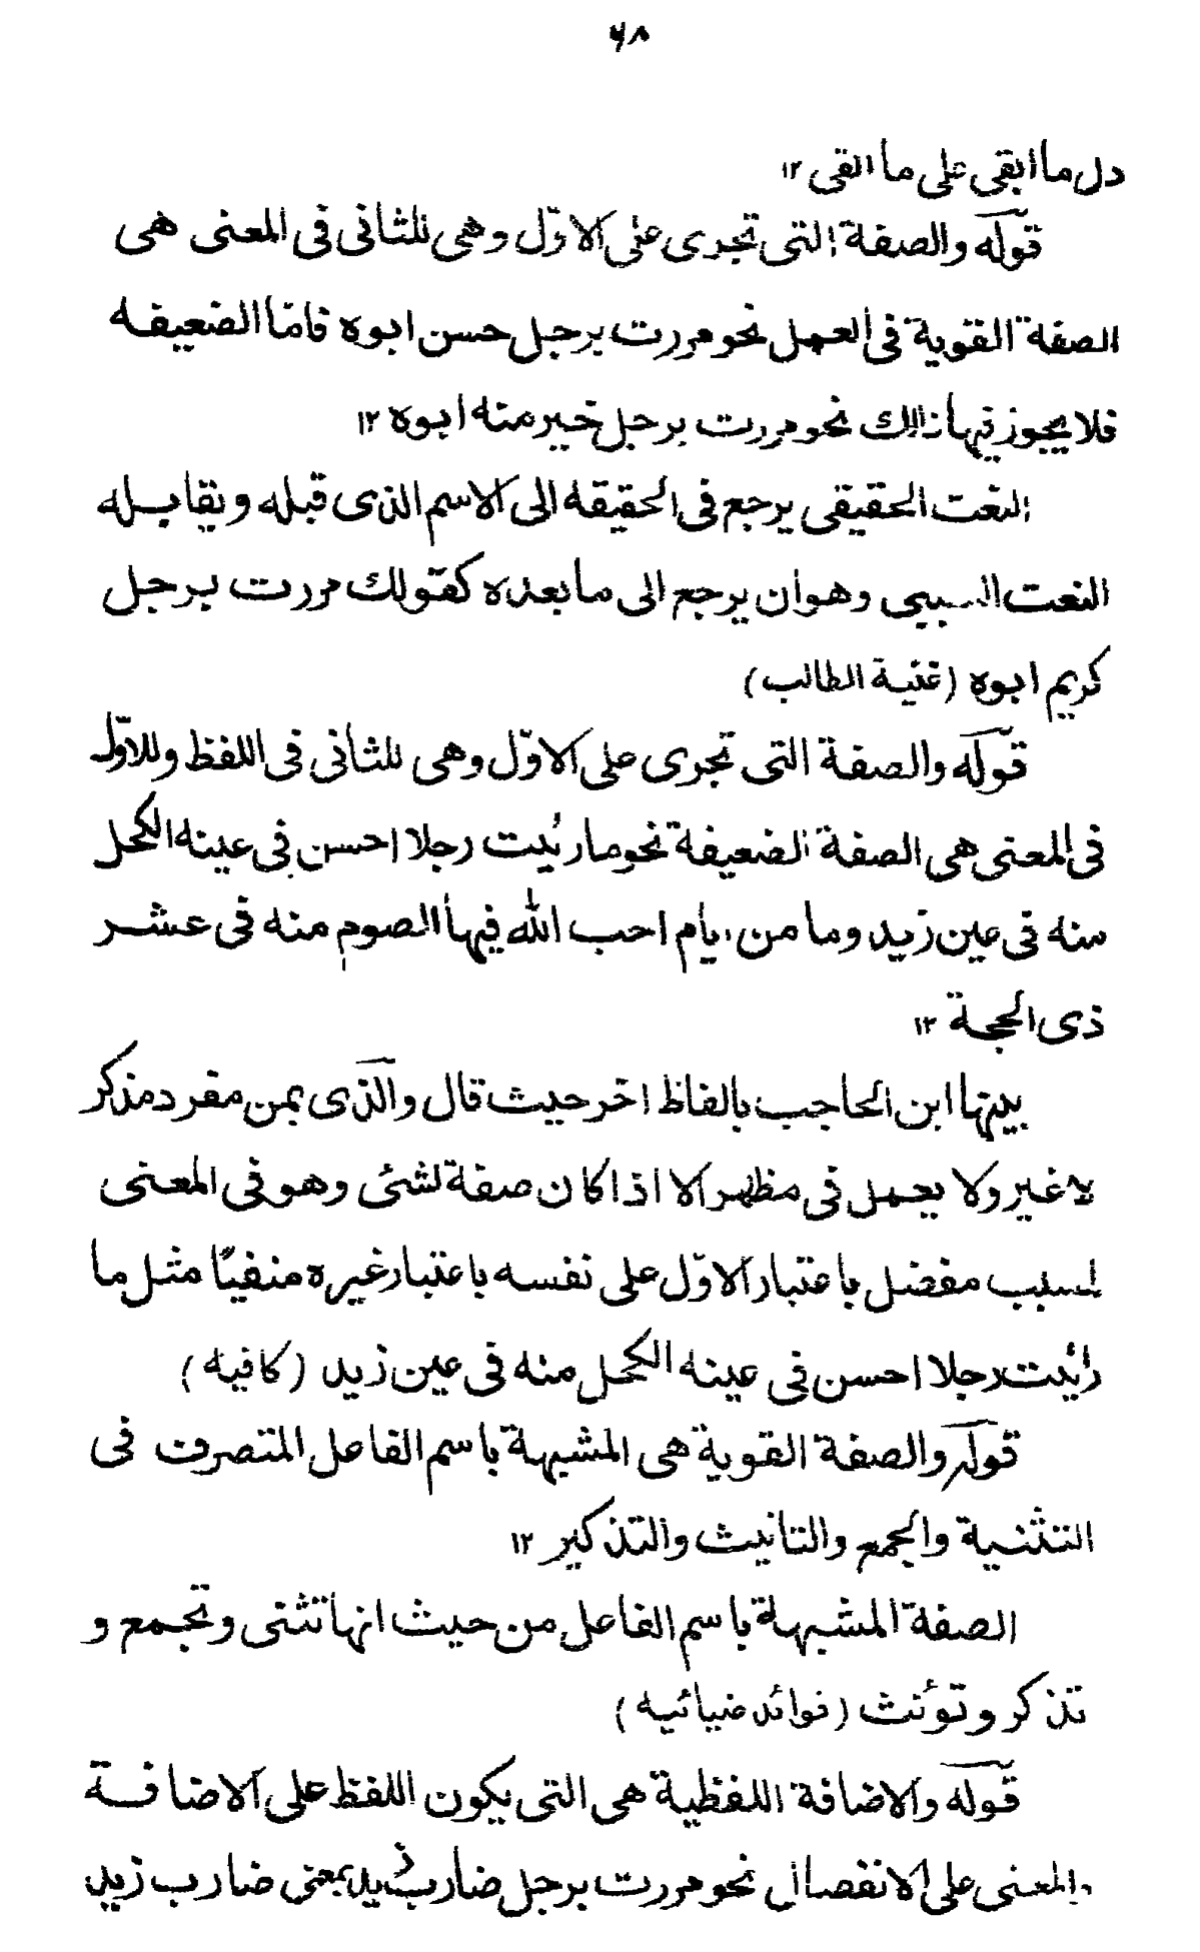 ۶۸
دل ما ابقى على ما القى ۱۲
قوله والصفة التى تجرى على الاوّل وهى للثانى فى المعنى هى
الصفة القوية فى العمل نحو مررت برجل حسن ابوه فامّا الضعيفه
فلا يجوز فيها ذالك نحو مررت برجل خير منه ابوه ۱۲
النعت الحقيقى يرجع فى الحقيقة الى الاسم الذى قبله ويقابله
النعت السببى وهو ان يرجع الى ما بعده كقولك مررت برجل
كريم ابوه (غنية الطالب)
قوله والصفة التى تجرى على الاوّل وهى للثانى فى اللفظ وللاوّل
فى المعنى هى الصفة الضعيفة نحو ما رئيت رجلا احسن فى عينه الكحل
منه فى عين زيد وما من ايام احب الله فيها الصوم منه فى عشر
ذى الحجة ۱۲
بينها ابن الحاجب بالفاظ اخر حيث قال والذى بمن مفرد مذكر
لا غير ولا يعمل فى مظهر الا اذا كان صفة لشئ وهو فى المعنى
لسبب مفضل باعتبار الاوّل على نفسه باعتبار غيره منفيًا مثل ما
رأيت رجلا احسن فى عينه الكحل منه فى عين زيد (كافيه)
قوله والصفة القوية هى المشبهة باسم الفاعل المتصرف فى
التثنية والجمع والتانيث والتذكير ۱۲
الصفة المشبهة باسم الفاعل من حيث انها تثنى وتجمع و
تذكر وتؤنث (فوائد ضيائيه)
قوله والاضافة اللفظية هى التى يكون اللفظ على الاضافة
والمعنى على الانفصال نحو مررت برجل ضارب زيد بمعنى ضارب زيد